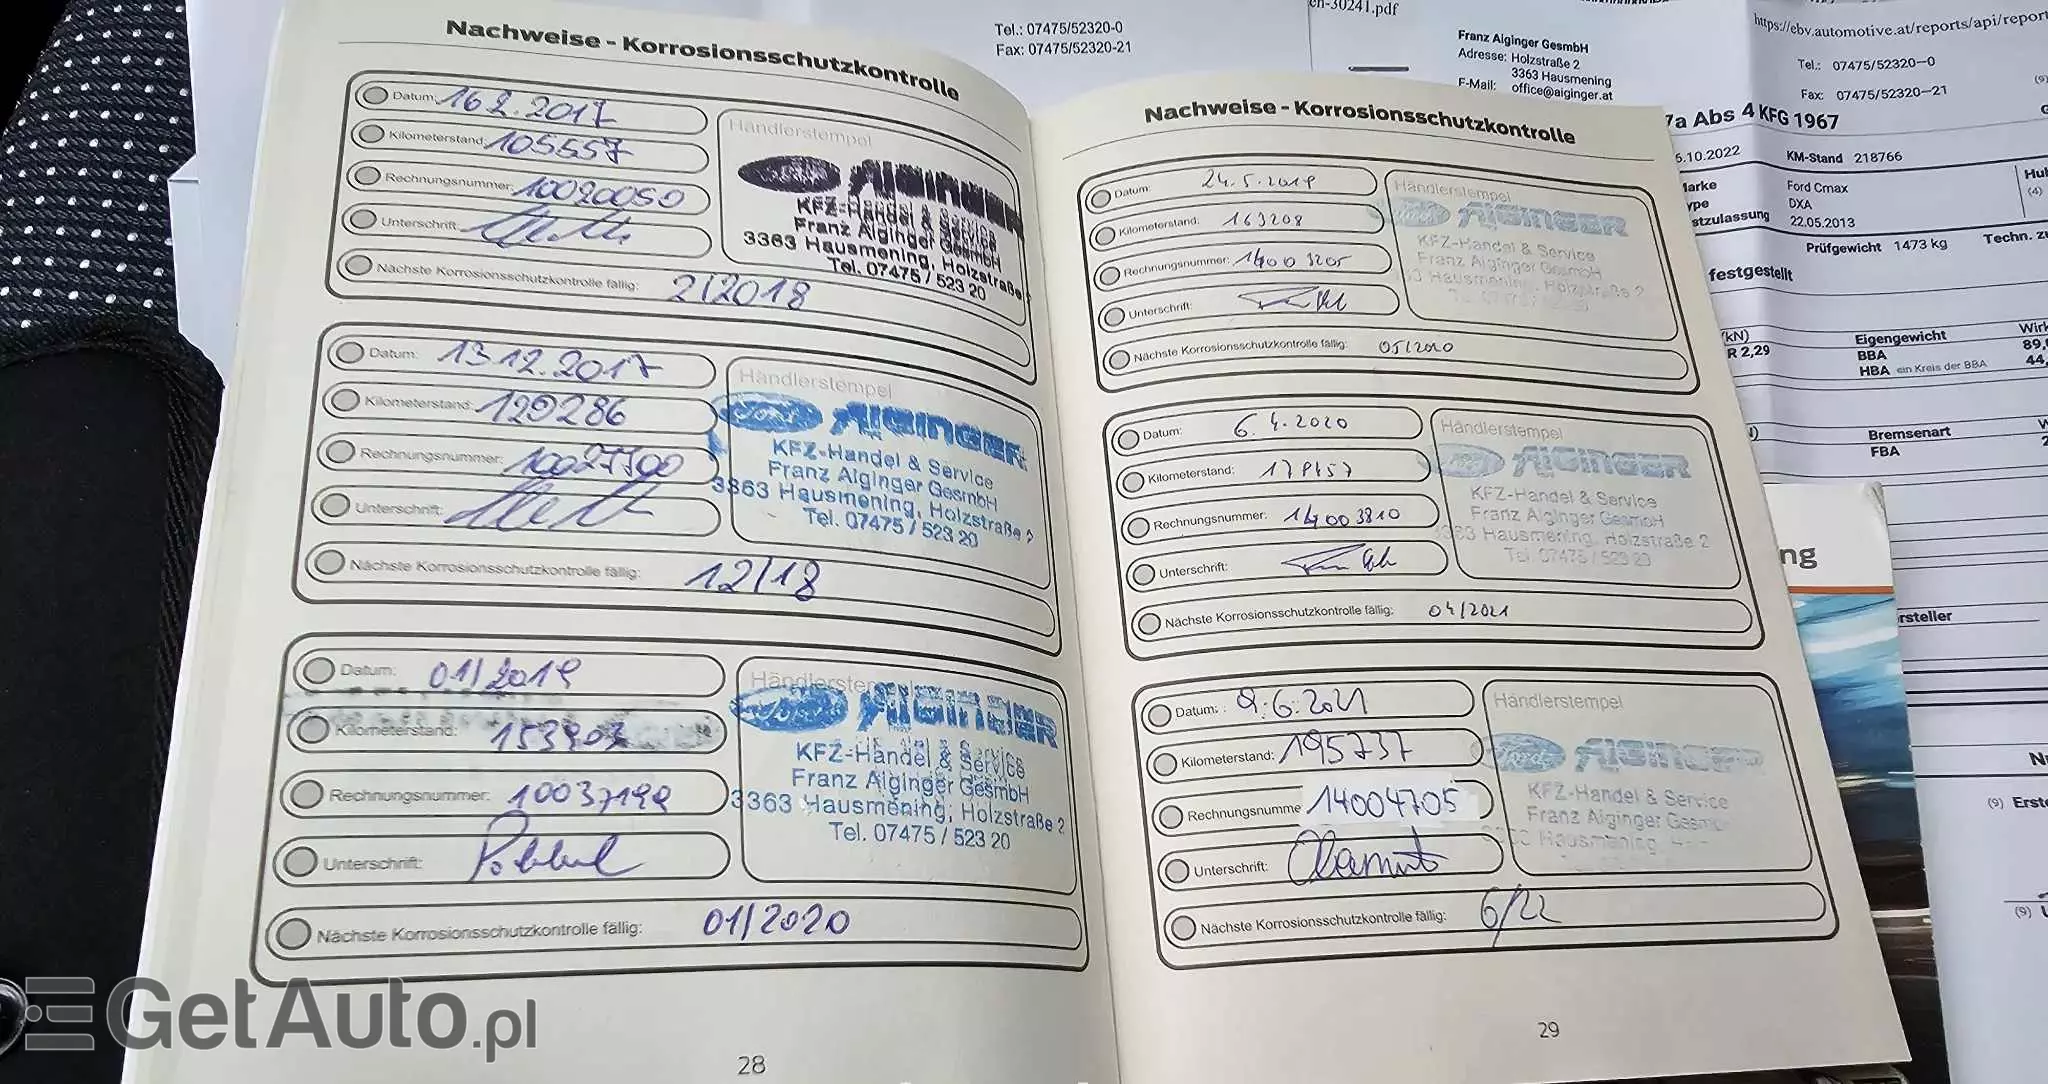 Nachweise - Korrosionsschutzkontrolle
Datum: 16.2.2017
Kilometerstand: 105557
Rechnungsnummer: 10020050
Unterschrift:
Nächste Korrosionsschutzkontrolle fällig: 2/2018
Händlerstempel
Ford AIGINGER
KFZ-Handel & Service
Franz Aiginger GesmbH
3363 Hausmening, Holzstraße
Tel. 07475 / 523 20
Datum: 13.12.2017
Kilometerstand: 129286
Rechnungsnummer: 10027700
Unterschrift:
Nächste Korrosionsschutzkontrolle fällig: 12/18
Händlerstempel
Ford AIGINGER
KFZ-Handel & Service
Franz Aiginger GesmbH
3363 Hausmening, Holzstraße 2
Tel. 07475 / 523 20
Datum: 01/2019
Kilometerstand: 153903
Rechnungsnummer: 10037199
Unterschrift:
Nächste Korrosionsschutzkontrolle fällig: 01/2020
Händlerstempel
Ford AIGINGER
KFZ-Handel & Service
Franz Aiginger GesmbH
3363 Hausmening, Holzstraße 2
Tel. 07475 / 523 20
28
Nachweise - Korrosionsschutzkontrolle
Datum: 24.5.2019
Kilometerstand: 163208
Rechnungsnummer: 14003205
Unterschrift:
Nächste Korrosionsschutzkontrolle fällig: 05/2020
Händlerstempel
Ford AIGINGER
KFZ-Handel & Service
Franz Aiginger GesmbH
Hausmening, Holzstraße 2
Datum: 6.4.2020
Kilometerstand:
Rechnungsnummer: 14003810
Unterschrift:
Nächste Korrosionsschutzkontrolle fällig: 04/2021
Händlerstempel
Ford AIGINGER
KFZ-Handel & Service
Franz Aiginger GesmbH
3363 Hausmening, Holzstraße 2
Tel. 07475 / 523 20
Datum: 9.6.2021
Kilometerstand: 195737
Rechnungsnumme 14004705
Unterschrift:
Nächste Korrosionsschutzkontrolle fällig: 6/22
Händlerstempel
Ford AIGINGER
KFZ-Handel & Service
Franz Aiginger
Hausmening,
29
Tel.: 07475/52320-0
Fax: 07475/52320-21
en-30241.pdf
Franz Aiginger GesmbH
Adresse: Holzstraße 2
3363 Hausmening
E-Mail: office@aiginger.at
https://ebv.automotive.at/reports/api/report
Tel.: 07475/52320-0
Fax: 07475/52320-21
7a Abs 4 KFG 1967
5.10.2022
KM-Stand 218766
arke Ford Cmax
ype DXA
stzulassung 22.05.2013
Prüfgewicht 1473 kg
Techn. zu
festgestellt
(kN)
R 2,29
Eigengewicht
BBA
HBA ein Kreis der BBA
Wirk
89,
44,
Bremsenart
FBA
ng
rsteller
(9) Erste
(9)
GetAuto.pl